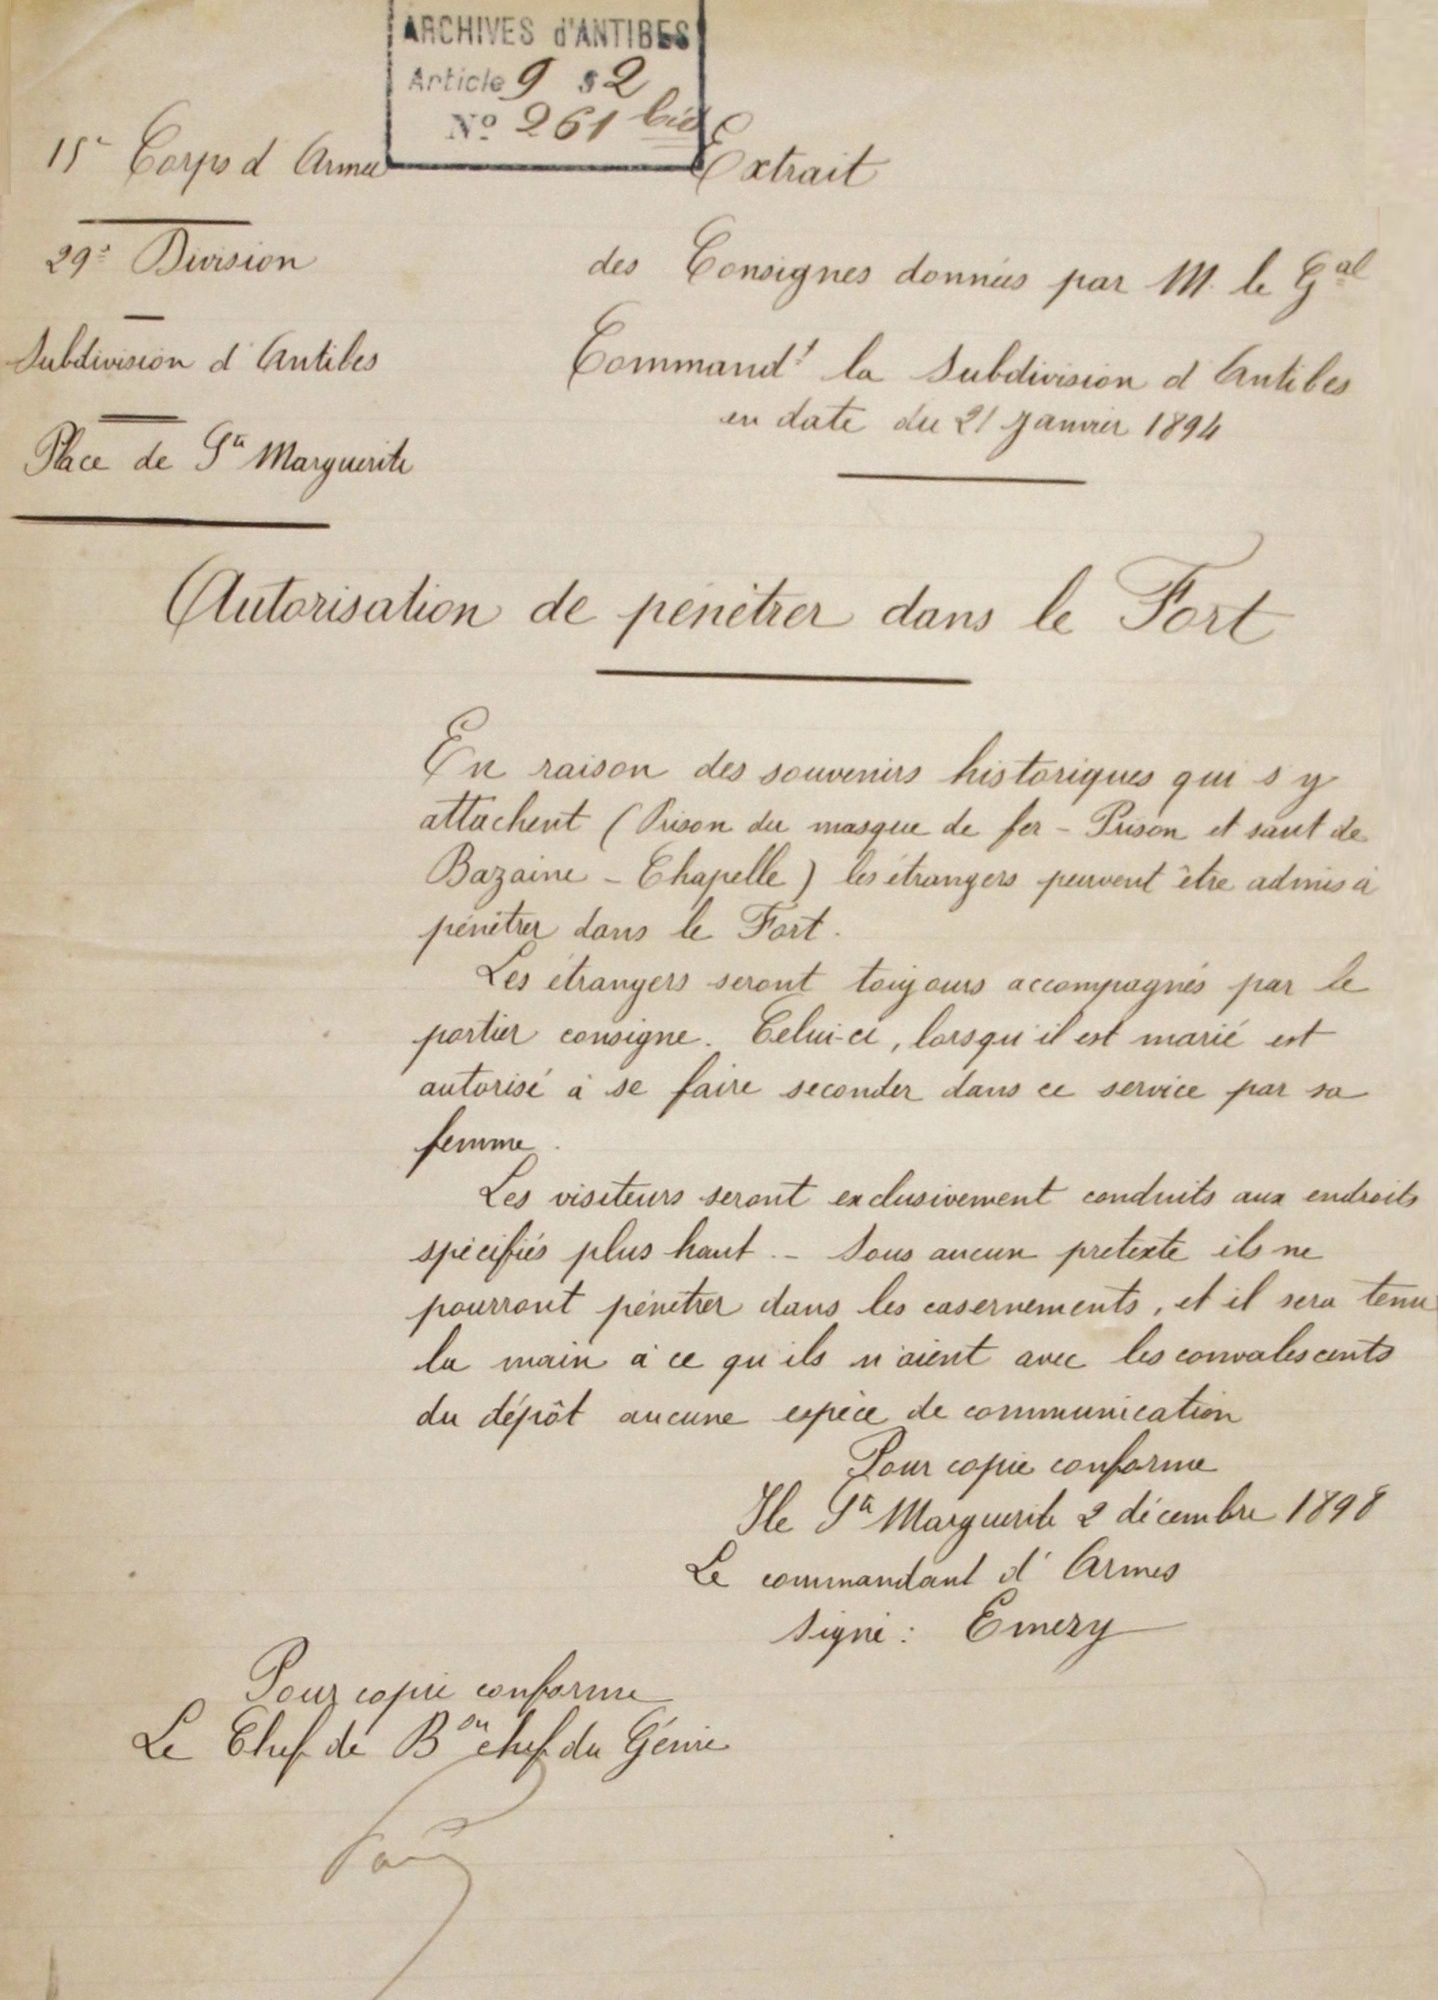 ARCHIVES d'ANTIBES
Article 9 § 2
N° 261 bis
15e Corps d'Armée
29e Division
Subdivision d'Antibes
Place de Ste Marguerite
Extrait
des Consignes données par M. le Gal
Commandt la Subdivision d'Antibes
en date du 21 Janvier 1894
Autorisation de pénétrer dans le Fort
En raison des souvenirs historiques qui s'y
attachent (Prison du masque de fer - Prison et saut de
Bazaine - Chapelle) les étrangers peuvent être admis à
pénétrer dans le Fort.
Les étrangers seront toujours accompagnés par le
portier consigne. Celui-ci, lorsqu'il est marié est
autorisé à se faire seconder dans ce service par sa
femme.
Les visiteurs seront exclusivement conduits aux endroits
spécifiés plus haut. - Sous aucun pretexte ils ne
pourront pénétrer dans les casernements, et il sera tenu
la main à ce qu'ils n'aient avec les convalescents
du dépôt aucune espèce de communication
Pour copie conforme
Ile Ste Marguerite 2 décembre 1898
Le commandant d'Armes
Signé : Emery
Pour copie conforme
Le Chef de Bon chef du Génie